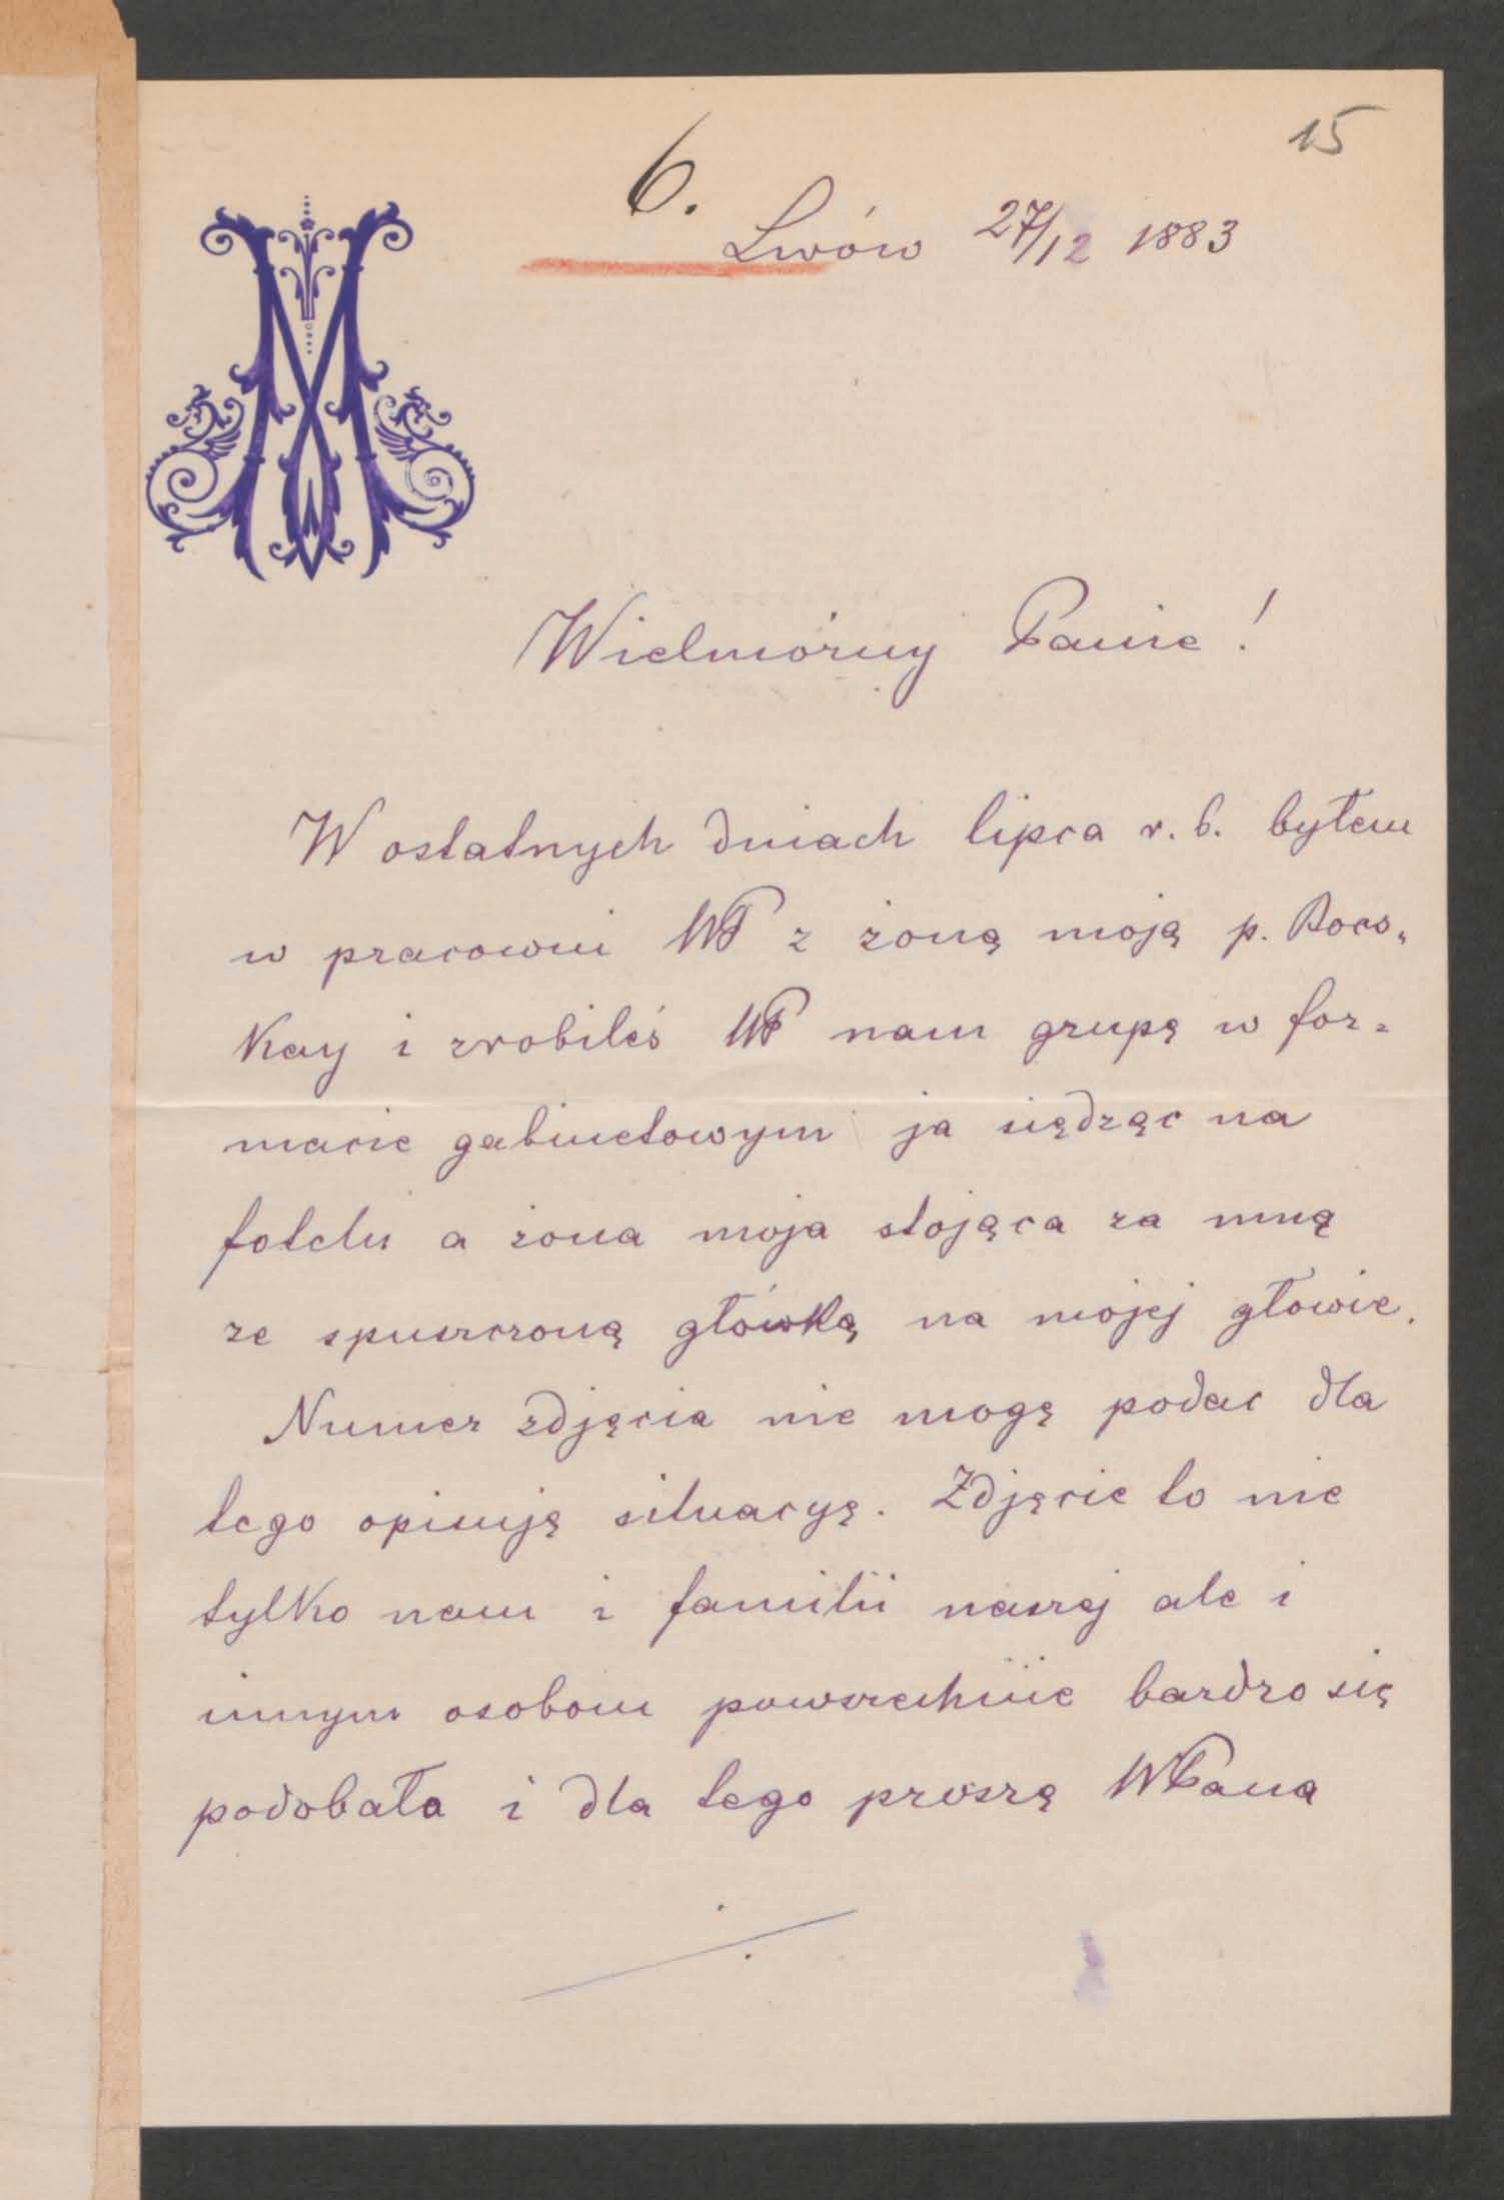 15
6.
Lwów 27/12 1883
Wielmożny Panie!
W ostatnych dniach lipca r. b. byłem
w pracowni WP z żoną moją p. Bocs„
kay i zrobiłeś WP nam grupę w for=
macie gabinetowym ja siędząc na
fotelu a żona moja stojąca za mną
ze spuszczoną główką na mojej głowie.
Numer zdjęcia nie mogę podać dla
tego opiniję situacyę. Zdjęcie to nie
tylko nam i familii naszej ale i
innym osobom powszechnie bardzo się
podobała i dla tego proszę WPana